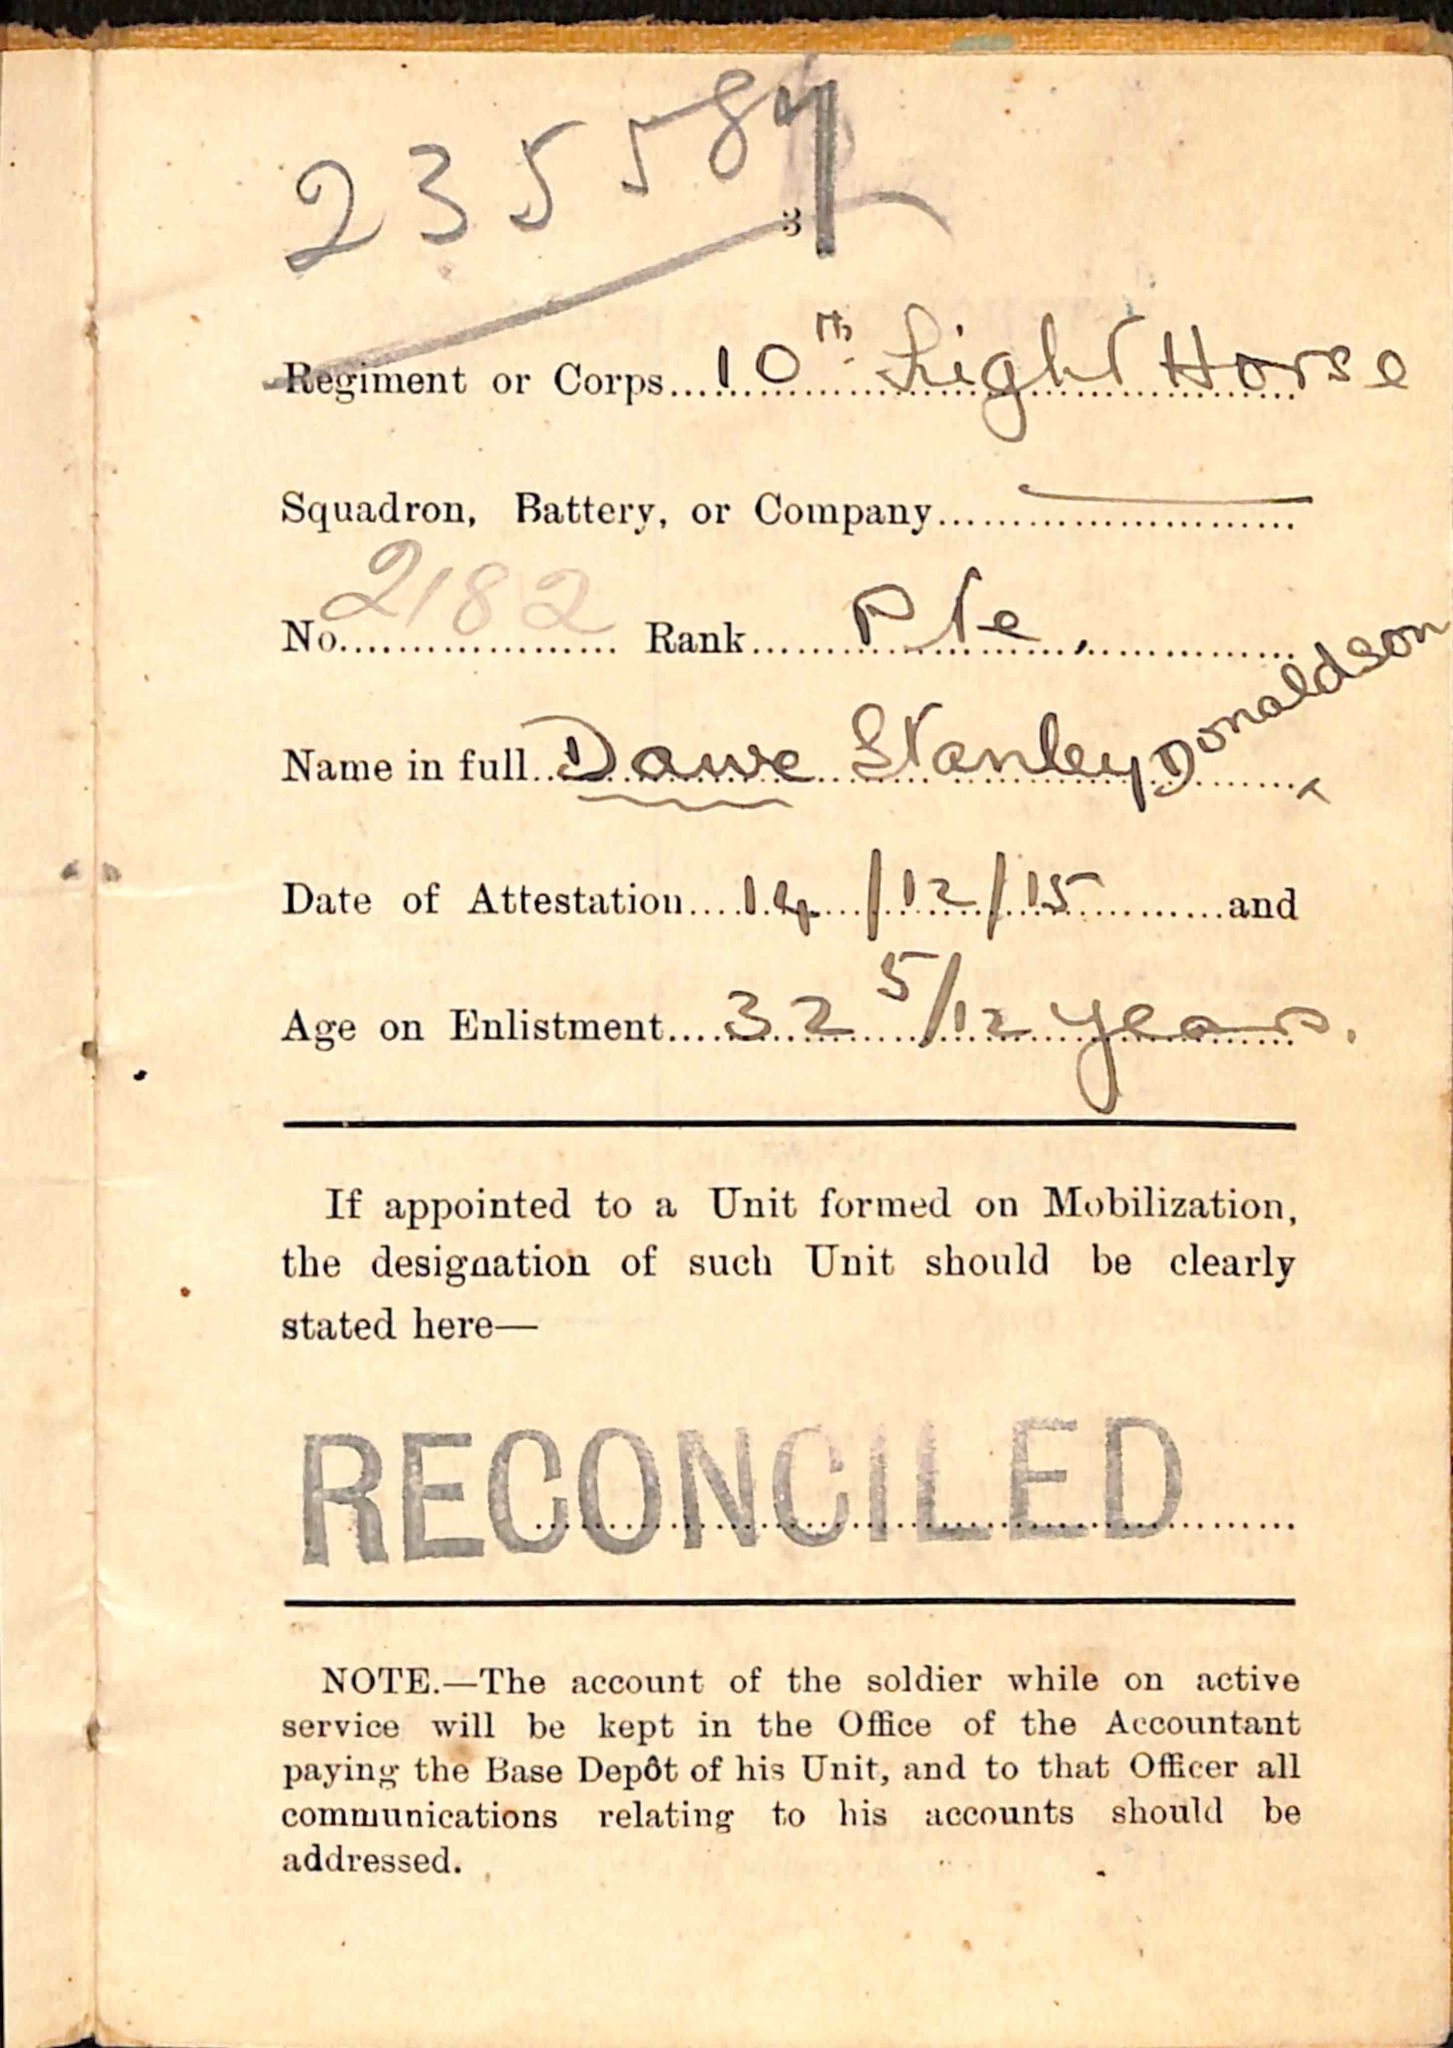 235587
3
Regiment or Corps 10th Light Horse
Squadron, Battery, or Company
No. 2182 Rank Pte.
Name in full Dawe Stanley Donaldson
Date of Attestation 14/12/15 and
Age on Enlistment 32 5/12 years.
If appointed to a Unit formed on Mobilization,
the designation of such Unit should be clearly
stated here—
RECONCILED
NOTE.—The account of the soldier while on active
service will be kept in the Office of the Accountant
paying the Base Depôt of his Unit, and to that Officer all
communications relating to his accounts should be
addressed.